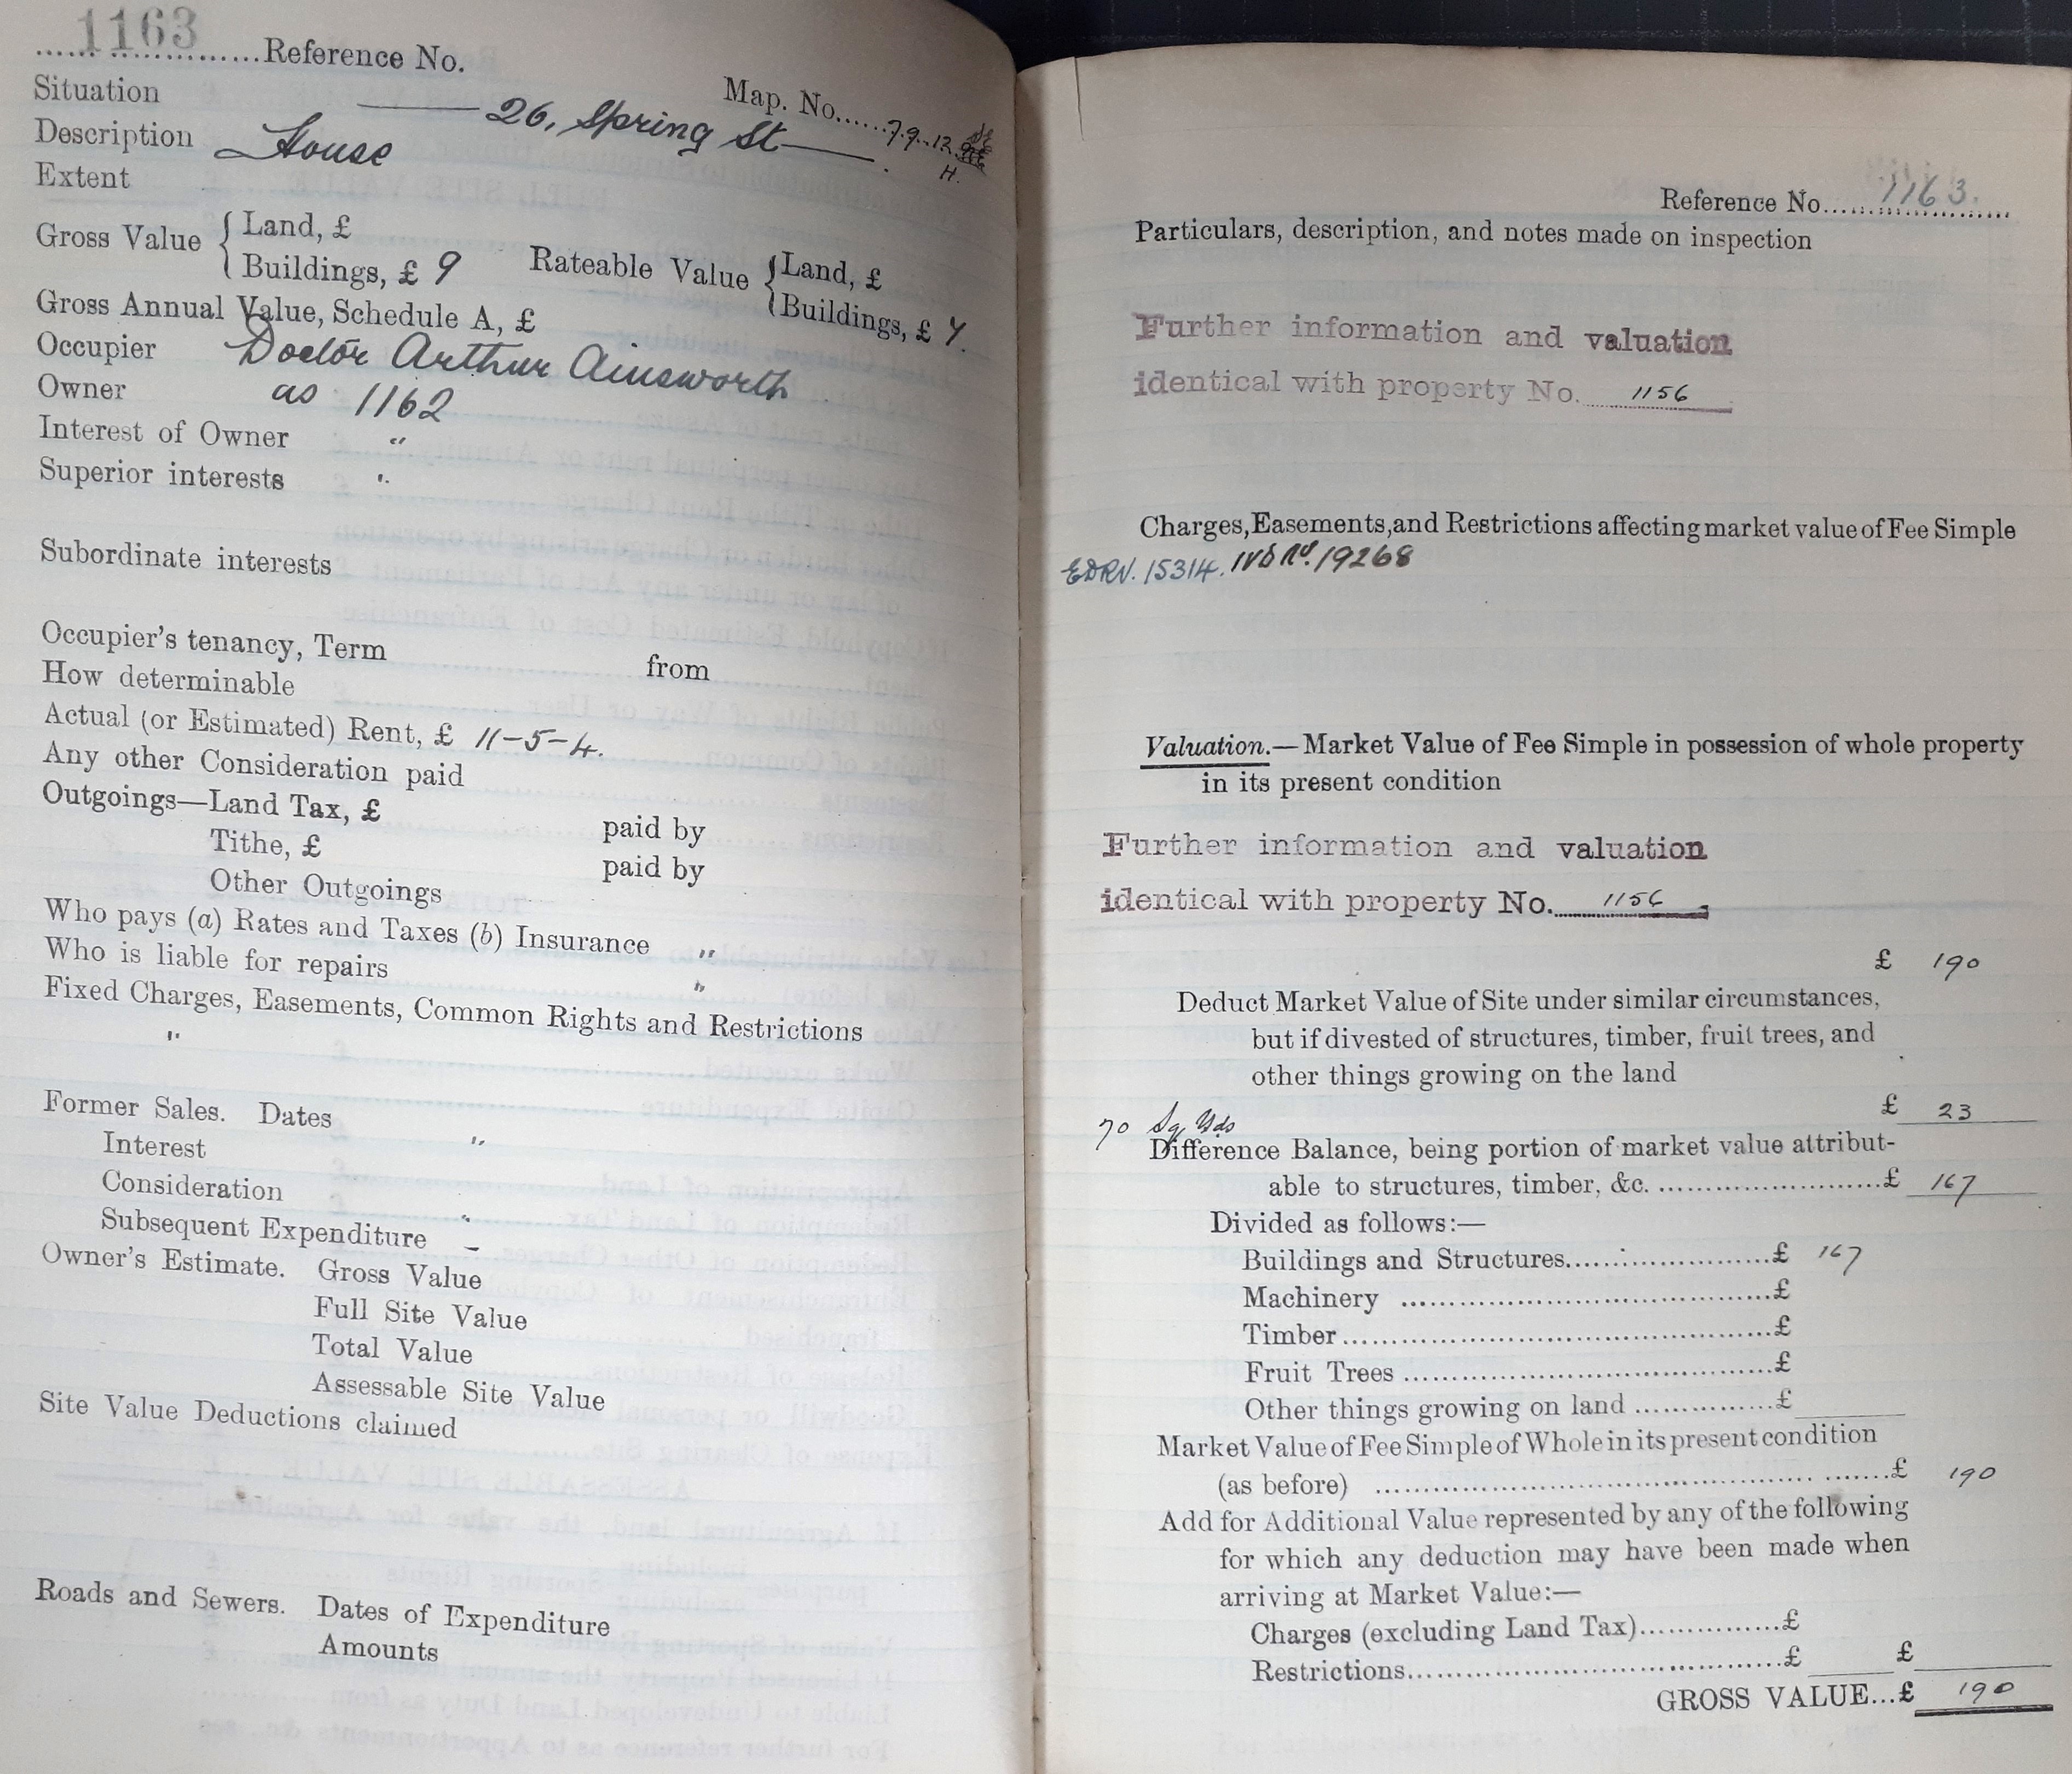 1163
Reference No.
Map. No. 79.12.
H.
Situation 26, Spring St
Description House
Extent
Gross Value { Land, £
Buildings, £ 9
Rateable Value { Land, £
Buildings, £ 7.
Gross Annual Value, Schedule A, £
Occupier Doctor Arthur Ainsworth
Owner as 1162
Interest of Owner "
Superior interests "
Subordinate interests
Occupier's tenancy, Term from
How determinable
Actual (or Estimated) Rent, £ 11-5-4.
Any other Consideration paid
Outgoings—Land Tax, £ paid by
Tithe, £ paid by
Other Outgoings
Who pays (a) Rates and Taxes (b) Insurance "
Who is liable for repairs "
Fixed Charges, Easements, Common Rights and Restrictions
"
Former Sales. Dates "
Interest
Consideration
Subsequent Expenditure "
Owner's Estimate. Gross Value
Full Site Value
Total Value
Assessable Site Value
Site Value Deductions claimed
Roads and Sewers. Dates of Expenditure
Amounts
Reference No. 1163.
Particulars, description, and notes made on inspection
Further information and valuation
identical with property No. 1156
Charges, Easements, and Restrictions affecting market value of Fee Simple
EDRN. 15314. IVD No. 19268
Valuation.—Market Value of Fee Simple in possession of whole property
in its present condition
Further information and valuation
identical with property No. 1156
£ 190
Deduct Market Value of Site under similar circumstances,
but if divested of structures, timber, fruit trees, and
other things growing on the land
£ 23
70 Sq Yds
Difference Balance, being portion of market value attribut-
able to structures, timber, &c. £ 167
Divided as follows:—
Buildings and Structures £ 167
Machinery £
Timber £
Fruit Trees £
Other things growing on land £
Market Value of Fee Simple of Whole in its present condition
(as before) £ 190
Add for Additional Value represented by any of the following
for which any deduction may have been made when
arriving at Market Value:—
Charges (excluding Land Tax) £
Restrictions £ £
GROSS VALUE...£ 190